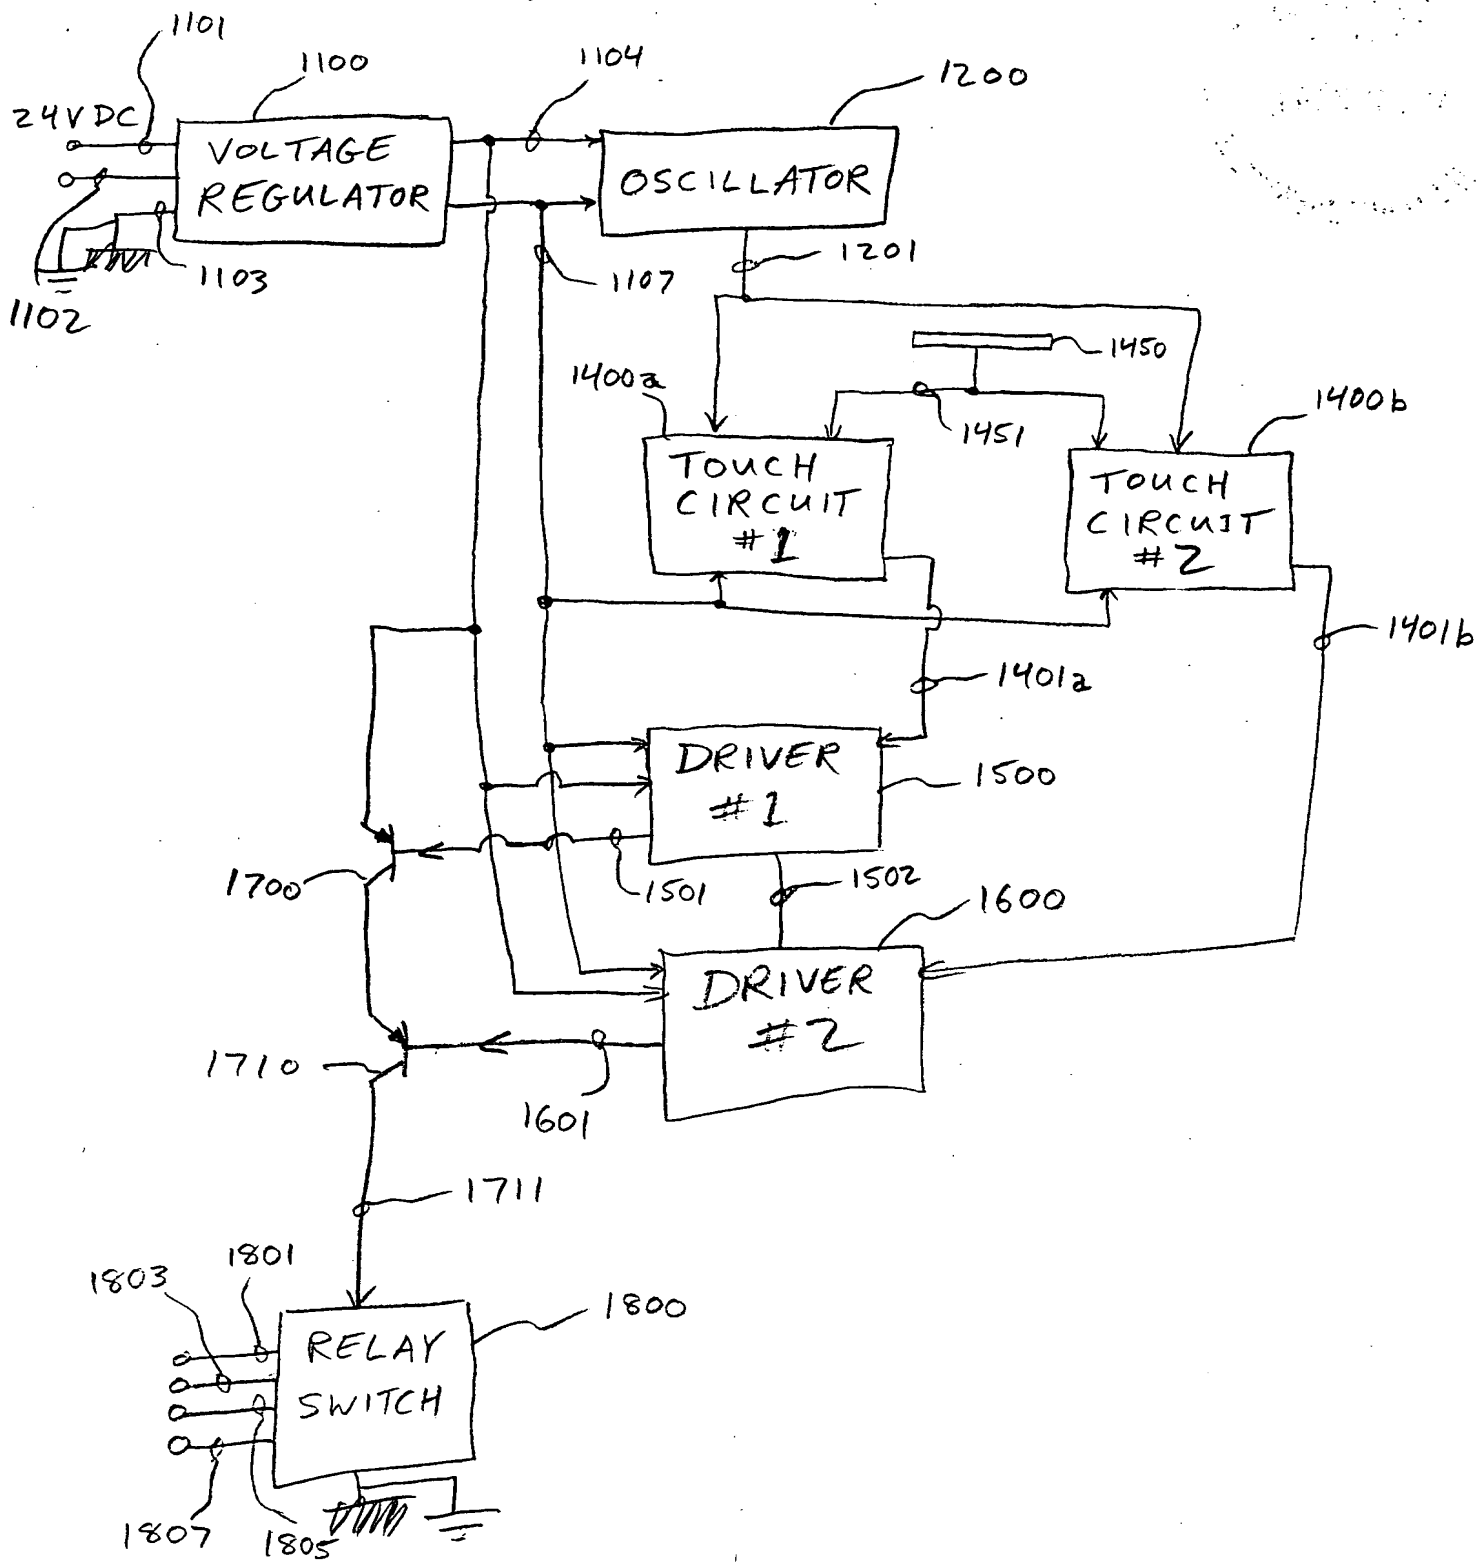 1101
1100
1104
1200
24VDC
VOLTAGE
REGULATOR
OSCILLATOR
1201
1103
1107
1102
1450
1400a
1400b
1451
TOUCH
CIRCUIT
#1
TOUCH
CIRCUIT
#2
1401b
1401a
DRIVER
#1
1500
1700
1501
1502
1600
DRIVER
#2
1710
1601
1711
1801
1803
1800
RELAY
SWITCH
1807
1805